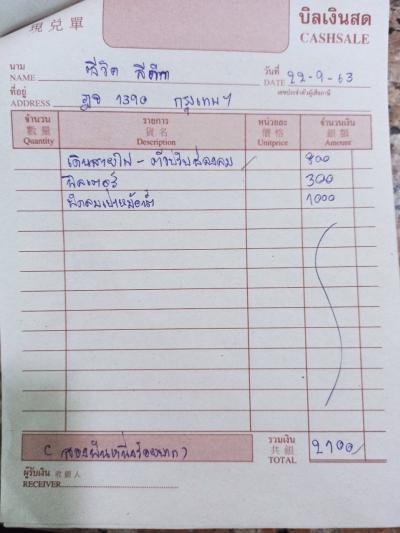 現兌單
บิลเงินสด
CASHSALE
นาม
NAME
วันที่
DATE 22-9-63
ที่อยู่
ADDRESS 1390 กรุงเทพฯ
เลขประจำตัวผู้เสียภาษี
จำนวน 數量 Quantity
รายการ 貨名 Description
หน่วยละ 價格 Unitprice
จำนวนเงิน 銀額 Amount
เดินสายไฟ - 800
300
พัดลมเป่าหม้อน้ำ 1000
(สองพันหนึ่งร้อยบาท)
รวมเงิน 共銀 TOTAL 2100
ผู้รับเงิน 收銀人
RECEIVER